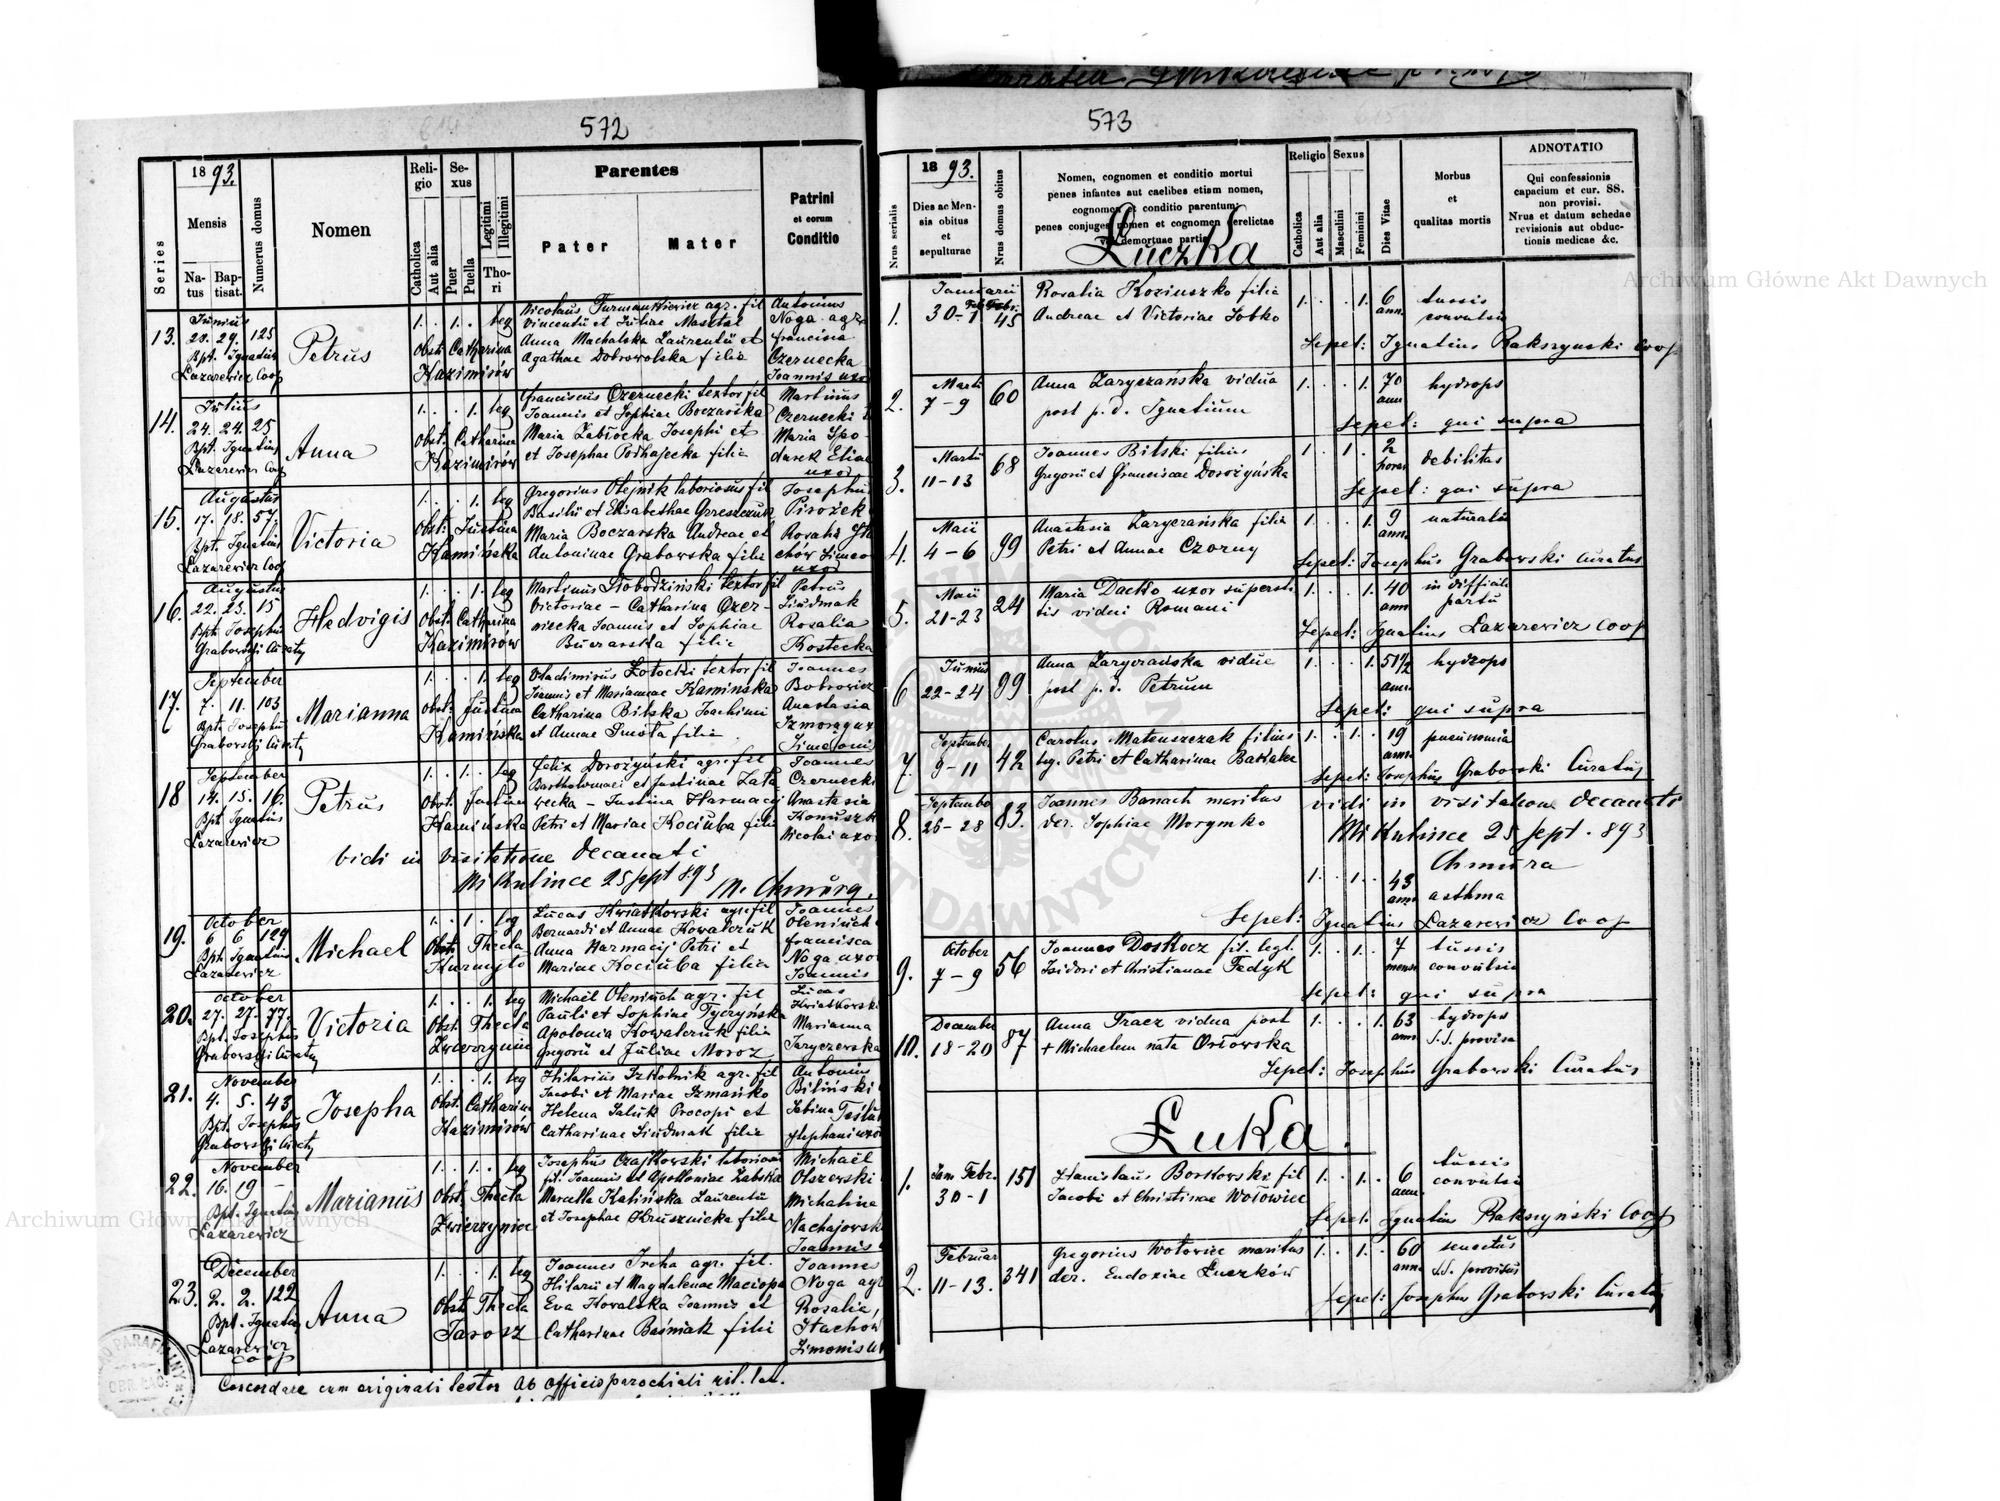 572
1893.
Series
Mensis
Natus
Baptisat.
Numerus domus
Nomen
Religio
Catholica
Aut alia
Sexus
Puer
Puella
Legitimi
Illegitimi
Thori
Parentes
Pater
Mater
Patrini
et eorum
Conditio
13.
Junius
28. 29. 125
Bpt. Ignatius
Lazarewicz Coop
Petrus
1. . 1. . leg
Obst: Catharina
Kazimirów
Nicolaus Furmankiewicz agr. fil
Vincentii et Juliae Masztal
Anna Machalska Laurentii et
Agathae Dobrowolska filia
Antonius
Noga agr.
Francisca
Czernecka
Joannis uxor
14.
Julius
24. 24. 25
Bpt. Ignatius
Lazarewicz Coop
Anna
1. . . 1. leg
Obst: Catharina
Kazimirów
Franciscus Czernecki textor fil
Joannis et Sophiae Boczarska
Maria Zabłocka Josephi et
et Josephae Podhajecka filia
Martinus
Czernecki
Maria Spo
durek Eliae
uxor
15.
Augustus
17. 18. 57
Bpt. Ignatius
Lazarewicz Coop
Victoria
1. . . 1. leg
Obst: Justina
Kamińska
Gregorius Olejnik laboriosus fil
Basilii et Elisabethae Greszczuk
Maria Boczarska Andreae et
Antoninae Grabowska filia
Josephus
Pirożek
Rosalia Sta
chów Simeon
uxor
16.
Augustus
22. 23. 15
Bpt. Josephus
Grabowski Curatus
Hedvigis
1. . . 1. leg
Obst: Catharina
Kazimirów
Martinus Słobodziński textor fil
Victoriae – Catharina Czer-
niecka Joannis et Sophiae
Buczarska filia
Petrus
Sindmak
Rosalia
Kostecka
17.
September
7. 11. 103
Bpt. Josephus
Grabowski Curatus
Marianna
1. . . 1. leg
Obst: Justina
Kamińska
Vladimirus Łotocki textor fil
Joannis et Mariannae Kamińska
Catharina Bilska Joachimi
et Annae Smota filia
Joannes
Bobrowicz
Anastasia
Izmorąg uxor
Simeonis
18
September
14. 15. 16.
Bpt. Ignatius
Lazarewicz
Petrus
1. . 1. . leg
Obst. Justina
Kamińska
Felix Dorożyński agr. fil
Bartholomaei et Justinae Zala
wecka – Justina Harmacij
Petri et Mariae Kociuba filia
Joannes
Czernecki
Anastasia
Konuszk
Nicolai uxor
Vidi in visitatione decanali
Mikulince 25 Sept 893 M. Chmura
19.
October
6 6 129
Bpt. Ignatius
Lazarewicz
Michael
1. . 1. . leg
Obst: Thecla
Kurnyło
Lucas Kwiatkowski agr. fil
Bernardi et Annae Kowalczuk
Anna Harmacij Petri et
Mariae Kociuba filia
Joannes
Oleniuch
Francisca
Noga uxor
Joannis
20.
October
27. 27. 77.
Bpt. Josephus
Grabowski Curatus
Victoria
1. . . 1. leg
Obst. Thecla
Zwierzyniec
Michael Oleniuch agr. fil
Pauli et Sophiae Tyczyńska
Apolonia Kowalczuk filia
Gregorii et Juliae Moroz
Lucas
Kwiatkorski
Marianna
Zaryczerska
21.
November
4. 5. 43
Bpt. Josephus
Grabowski Curatus
Josepha
1. . . 1. leg
Obst. Catharina
Kazimirów
Hilarius Szkolnik agr. fil
Jacobi et Mariae Szmańko
Helena Saluk Procopi et
Catharinae Sindmak filia
Antonius
Biliński
Sabina
Stephani uxor
22.
November
16. 19 –
Bpt. Ignatius
Lazarewicz
Marianus
1. . 1. . leg
Obst. Thecla
Zwierzyniec
Josephus Czajkowski laboriosus
fil. Joannis et Apolloniae Zabska
Marcella Kalińska Laurentii
et Josephae Krusznicka filia
Michael
Olszewski
Michalina
Nachajowska
Joannis
23.
December
2. 2. 122
Bpt. Ignatius
Lazarewicz
Coop
Anna
1. . . 1. leg
Obst. Thecla
Jarosz
Joannes Treha agr. fil.
Hilarii et Magdalenae Maciopa
Eva Kowalska Joannis et
Catharinae Baśniak filia
Joannes
Noga agr
Rosalia,
Stachów
Simonis
Concordare cum originali testor Ab officio parochiali rit. lat.
573
1893.
Nrus serialis
Dies ac Mensis obitus
et
sepulturae
Nrus domus obitus
Nomen, cognomen et conditio mortui
penes infantes aut caelibes etiam nomen,
cognomen et conditio parentum;
penes conjuges nomen et cognomen derelictae
vel demortuae partis
Religio
Catholica
Aut alia
Sexus
Masculini
Feminini
Dies Vitae
Morbus
et
qualitas mortis
ADNOTATIO
Qui confessionis
capacium et cur. SS.
non provisi.
Nrus et datum schedae
revisionis aut obductionis medicae &c.
Łuczka
1.
Januarii Febr.
30–1 45
Rosalia Koziuszko filia
Andreae et Victoriae Sobko
1. . . 1. 6 ann.
tussis
convulsiv
Sepel: Ignatius Rakszynski Coop
2.
Martii
7–9 60
Anna Zaryczańska vidua
post p. d. Ignatium
1. . . 1. 70 ann
hydrops
Sepel: qui supra
3.
Martii
11–13 68
Joannes Bilski filius
Gregorii et Franciscae Dorożyńska
1 . 1 . 2 horas
debilitas
Sepel: qui supra
4.
Maii
4–6 99
Anastasia Zaryczańska filia
Petri et Annae Czorny
1. . . 1. 9 ann.
naturalis
Sepel: Josephus Grabowski Curatus
5.
Maii
21–23 24
Maria Dacko uxor supersti
tis vidui Romani
1. . . 1. 40 ann
in difficili
partu
Sepel: Ignatius Lazarewicz Coop
6
Junius
22–24 99
Anna Zaryczańska vidua
post p. d. Petrum
1. . . 1. 51 1/2 ann.
hydrops
Sepel: qui supra
7.
September
9–11 42
Carolus Mateuszczak filius
leg. Petri et Catharinae Bartaka
1. . 1. . 19 ann.
pneumonia
Sepel: Josephus Grabowski Curatus
8.
Septembr
26–28 83.
Joannes Banach maritus
der. Sophiae Morymko
vidi in visitatione decanali
Mikulince 25 Sept. 893
Chmura
1. . 1. . 43 ann
asthma
Sepel: Ignatius Lazarewicz Coop
9.
October
7–9 56
Joannes Doskocz fil. legt.
Isidori et Christianae Fedyk
1. . 1. . 7 mens.
tussis
convulsiv
Sepel: qui supra
10.
December
18–20 87
Anna Tracz vidua post
+ Michaelem nata Orłowska
1. . . 1. 63 ann
hydrops
S.S. provisa
Sepel: Josephus Grabowski Curatus
Łuka.
1.
Jan Febr.
30–1 151
Stanislaus Borkowski fil
Jacobi et Christinae Wołowiec
1. . 1. . 6 ann.
tussis
convulsiv
Sepel: Ignatius Rakszyński Coop
2.
Februar
11–13. 341
Gregorius Wołowiec maritus
der. Eudoxiae Łuczków
1. . 1. . 60 ann.
senectus
S.S. provisus
Sepel: Josephus Grabowski Curatus
Archiwum Główne Akt Dawnych
Archiwum Główne Akt Dawnych